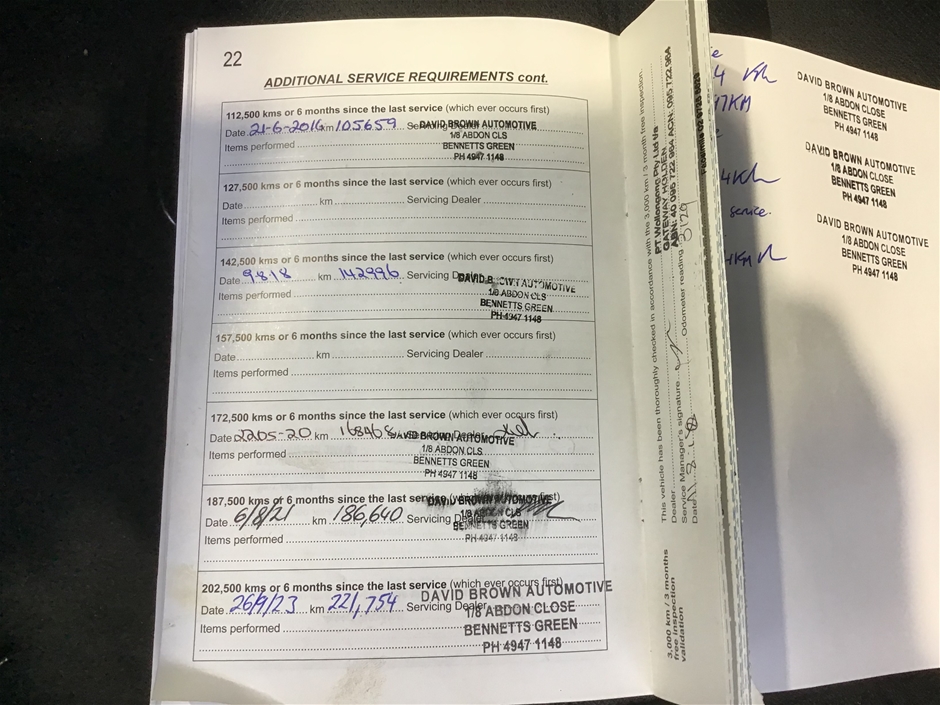 22
ADDITIONAL SERVICE REQUIREMENTS cont.
112,500 kms or 6 months since the last service (which ever occurs first)
Date 21-6-2016 km 105659 Servicing Dealer DAVID BROWN AUTOMOTIVE
1/8 ABDON CLS
Items performed BENNETTS GREEN
PH 4947 1148
127,500 kms or 6 months since the last service (which ever occurs first)
Date km Servicing Dealer
Items performed
142,500 kms or 6 months since the last service (which ever occurs first)
Date 9.8.18 km 142996 Servicing Dealer DAVID BROWN AUTOMOTIVE
1/8 ABDON CLS
Items performed BENNETTS GREEN
PH 4947 1148
157,500 kms or 6 months since the last service (which ever occurs first)
Date km Servicing Dealer
Items performed
172,500 kms or 6 months since the last service (which ever occurs first)
Date 2205-20 km 168468 Servicing Dealer
DAVID BROWN AUTOMOTIVE
1/8 ABDON CLS
Items performed BENNETTS GREEN
PH 4947 1148
187,500 kms or 6 months since the last service (which ever occurs first)
DAVID BROWN AUTOMOTIVE
Date 6/8/21 km 186,640 Servicing Dealer 1/8 ABDON CLS
BENNETTS GREEN
Items performed PH 4947 1148
202,500 kms or 6 months since the last service (which ever occurs first)
DAVID BROWN AUTOMOTIVE
Date 26/9/23 km 221,754 Servicing Dealer 1/8 ABDON CLOSE
Items performed BENNETTS GREEN
PH 4947 1148
3,000 km / 3 months
free inspection
validation
This vehicle has been thoroughly checked in accordance with the 3,000 km / 3 month free inspection.
Dealer PT Wollongong Pty Ltd t/a
GATEWAY HOLDEN
ABN: 40 095 722 964 ACN: 095 722 964
Service Manager's signature Odometer reading 3129
Date
7KM
4Km
service.
4KM
DAVID BROWN AUTOMOTIVE
1/8 ABDON CLOSE
BENNETTS GREEN
PH 4947 1148
DAVID BROWN AUTOMOTIVE
1/8 ABDON CLOSE
BENNETTS GREEN
PH 4947 1148
DAVID BROWN AUTOMOTIVE
1/8 ABDON CLOSE
BENNETTS GREEN
PH 4947 1148